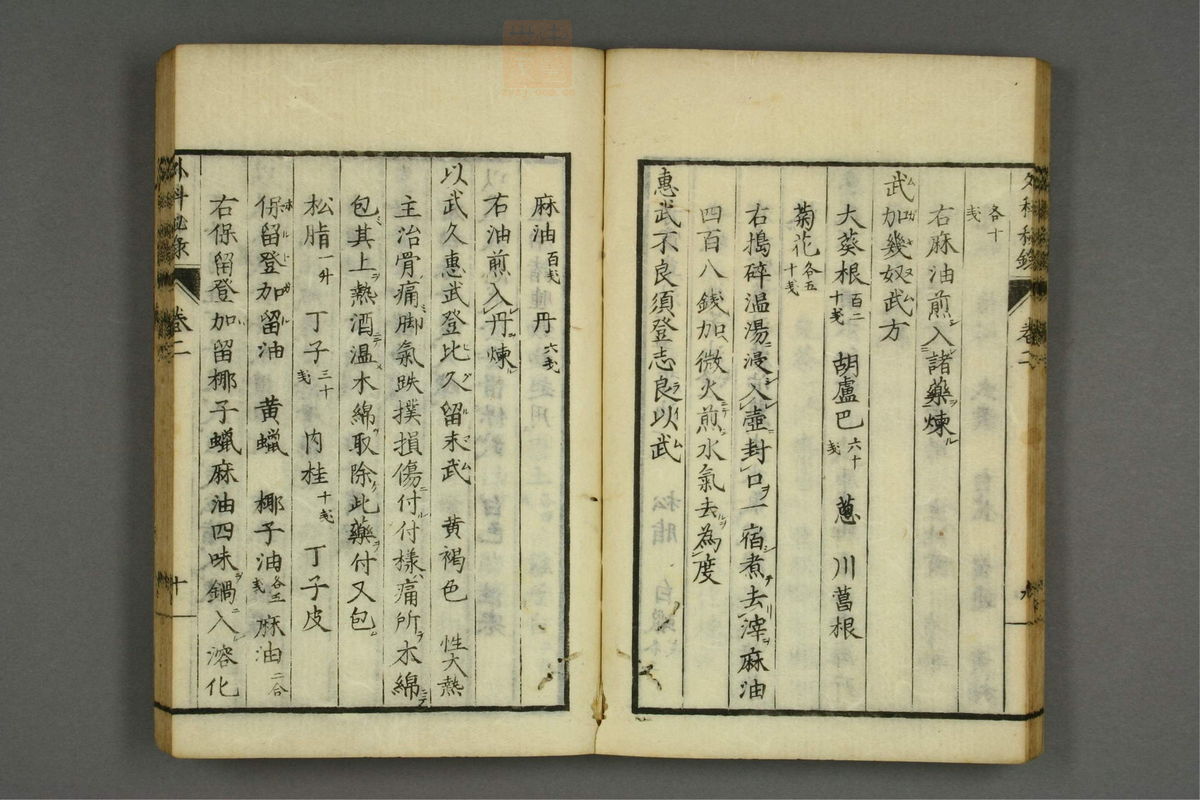 外科秘錄 卷二 九
各十戔
右麻油煎入諸藥煉
武加幾奴武方
大葵根百二十戔 胡盧巴六十戔 蔥 川葛根
菊花各五十戔
右搗碎溫湯浸入壺封口一宿煮去滓麻油
四百八錢加微火煎水氣去為度
惠武不良須登志良以武
麻油百戔 丹六戔
右油煎入丹煉
以武久惠武登比久留末武 黃褐色 性大熱
主治骨痛脚氣跌撲損傷付付樣痛所木綿
包其上熱酒溫木綿取除此藥付又包
松脂一升 丁子三十戔 肉桂十戔 丁子皮
保留登加留油 黃蠟 椰子油各五戔 麻油二合
右保留登加留椰子蠟麻油四味鍋入溶化
外科秘录 卷二 十